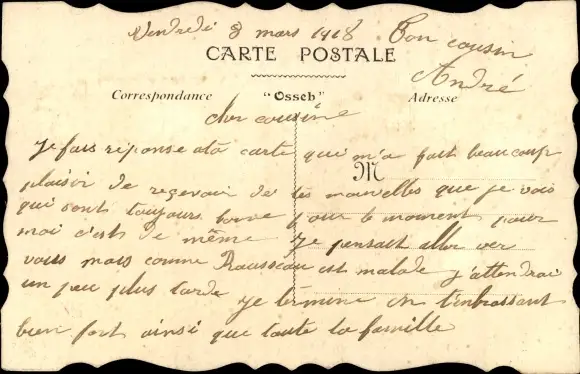 Vendredi 8 mars 1918 Ton cousin
André
CARTE POSTALE
Correspondance "Osseh" Adresse
cher cousine
Je fais réponse ata carte qui m'a fait beaucoup
M
plaisir de reçevoir de tes nouvelles que je vois
qui sont toujours bonne pour le moment pour
moi c'est de même Je pensait aller ver
vous mais comme Rousseau est malade j'attendrai
un peu plus tarde je termine en t'embrassant
bien fort ainsi que toute la famille